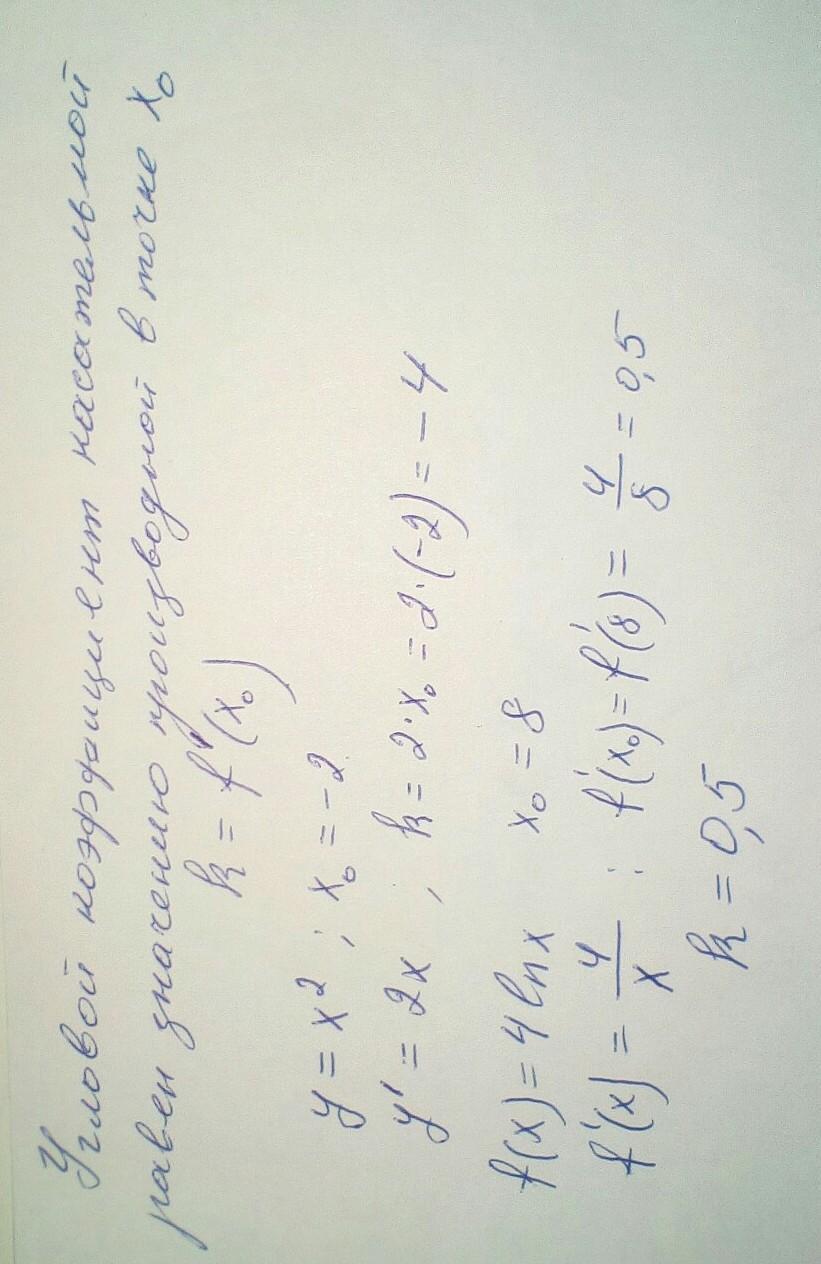 Угловой коэффициент касательной
равен значению производной в точке x₀
k = f'(x₀)
y = x² ; x₀ = -2
y' = 2x , k = 2·x₀ = 2·(-2) = -4
f(x) = 4 ln x x₀ = 8
f'(x) = 4/x ; f'(x₀) = f'(8) = 4/8 = 0,5
k = 0,5